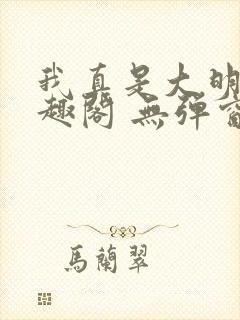 我真是大明
趣閣 無彈窗
馬蘭翠